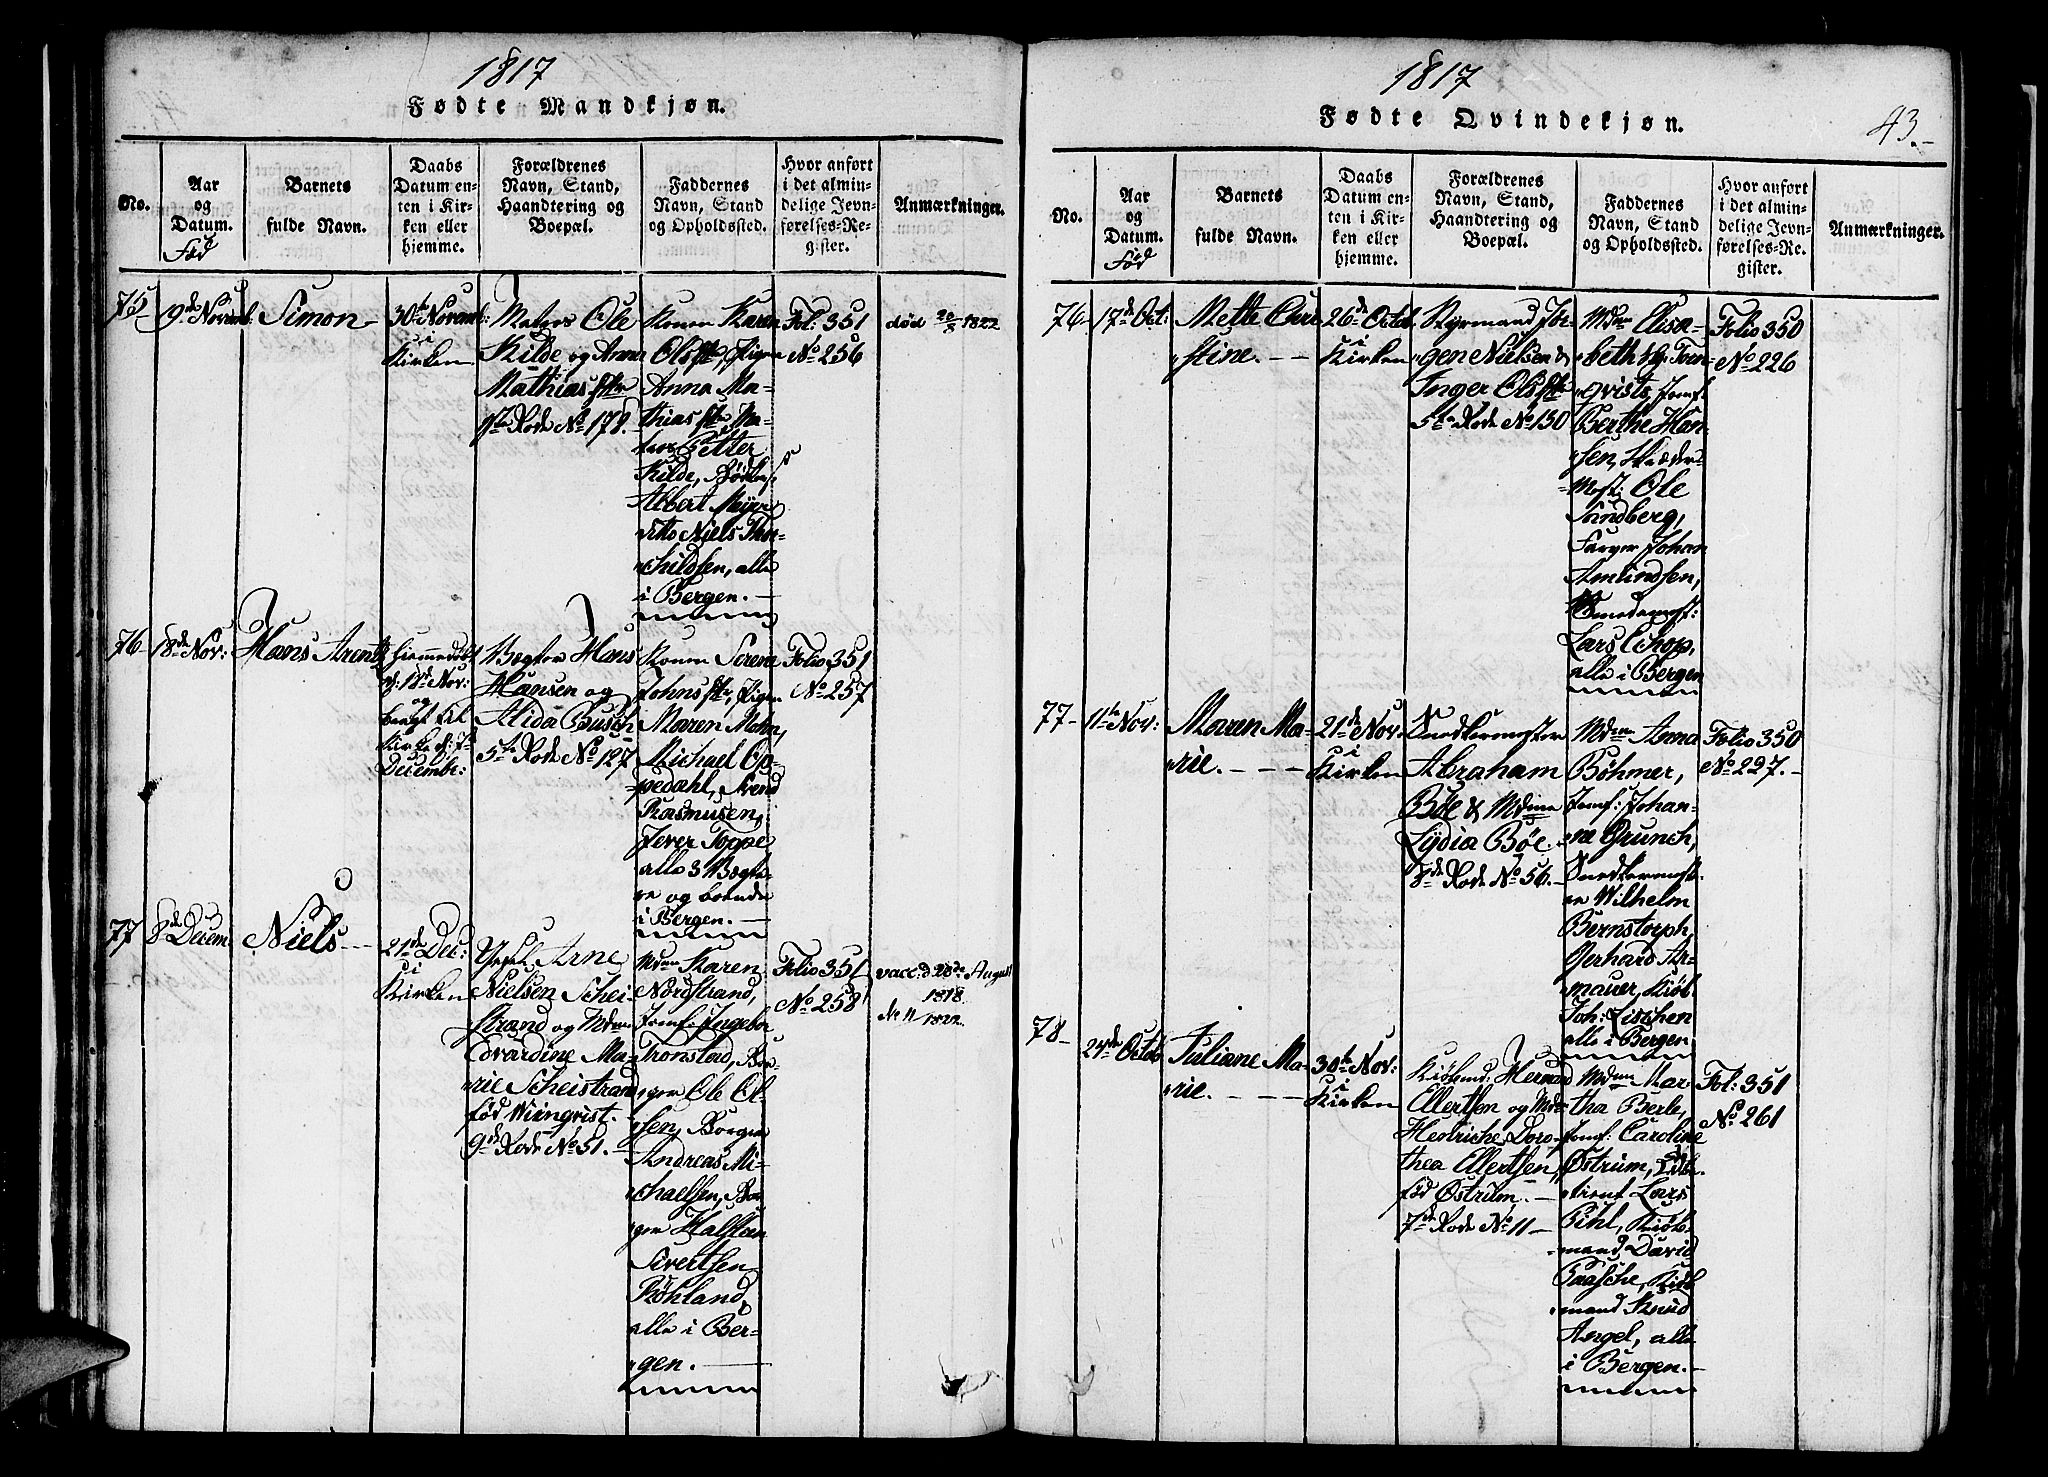 1817
Fødte Mandkjøn.
No.
Aar
og
Datum.
Fød
Barnets
fulde Navn.
Daabs
Datum en-
ten i Kir-
ken eller
hjemme.
Forældrenes
Navn, Stand,
Haandtering og
Boepæl.
Faddernes
Navn, Stand
og Opholdssted.
Hvor anført
i det almin-
delige Jevn-
førelses-Re-
gister.
Anmærkninger.
75
9de Novemb:
Simon
30te Novemb:
i
Kirken
Matros Ole
Kilde og Anna
Mathias
9te Rode No 178.
Konen Karen
Olsdtr, Pigen
Anna Ma-
thiasdtr, Ma-
tros Petter
Kilde,
Albert Meyer
ditto Niels Thor-
childsen, alle
i Bergen.
Fol: 351
No 256
død 20/8 1822
76
18de Nov:
Hans Arent
hiemmedøbt
d: 18de Nov:
og
bragt til
Kirke d: 7de
Decembr:
Bægter Hans
Hansen og
Alida Busch
5te Rode No 127
Konen Serena
Johnsdtr, Pigen
Maren Mohn,
Michael Op-
pedahl, Svend
Rasmusen,
Iever Toppe
alle 3 Bægte-
re og boende
i Bergen.
Folio 351
No 257
77
8de Decem
Niels
21de Dec:
i
Kirken
Arne
Nielsen Schei-
Strand og Mdme
Edvardine Ma-
rie Scheistrand
fød Wimqvist.
9de Rode No 51.
Mdme Karen
Nordstrand,
Jomf: Ingebor
Tronstad, Bor-
ger Ole Ol-
sen, Borger
Andreas Mi-
chaelsen, Bor-
ger Halsteen
Sivertsen
Røhland,
alle i Ber-
gen.
Folio 351
No 258
vacc: d 28de August
1818.
No 11/1822.
1817
Fødte Qvindekjøn.
43.
No.
Aar
og
Datum.
Fød
Barnets
fulde Navn.
Daabs
Datum en-
ten i Kir-
ken eller
hjemme.
Forældrenes
Navn, Stand,
Haandtering og
Boepæl.
Faddernes
Navn, Stand
og Opholdssted.
Hvor anført
i det almin-
delige Jevn-
førelses-Re-
gister.
Anmærkninger.
76
17de Oct:
Mette Chri
stine.
26de Octob
i
Kirken
Styrmand Jør-
gen Nielsen &
Inger Olsdtr
5te Rode No 130
Mdme Elisa-
beth
qvists, Jomf:
Berthe Han-
sen, Skræder-
Mest: Ole
Sundberg,
Farver Johan
Amundsen,
Smedemest:
Lars Chop,
alle i Bergen
Folio 350
No 226
77
11te Nov:
Maren Ma-
rie.
21de Nov.
i
Kirken
Snedkermester
Abraham
Bøe & Mdme
Lydia Bøe.
8de Rode No 56.
Mdme Anna
Bøhmer,
Jomf: Johan-
ne Grunch,
Snedkermest-
er Wilhelm
Bernstorph,
Gerhard Ar-
mauer, Kiøb
Joh: Lischen
alle i Bergen
Folio 350
No 227.
78
24de Octob
Juliane Ma-
rie.
30te Nov:
i
Kirken
Kiøbmd: Herman
Ellertsen og Mdme
Hendriche Doro-
thea Ellertsen,
fød Østrum.
7de Rode No 11
Mdme Mar-
tha Berle,
Jomf: Caroline
Østrum,
Lars
Pihl, Kiøb-
mand David
Paasche, Kiøb
mand Knud
Angel, alle
i Bergen.
Fol: 351
No 261